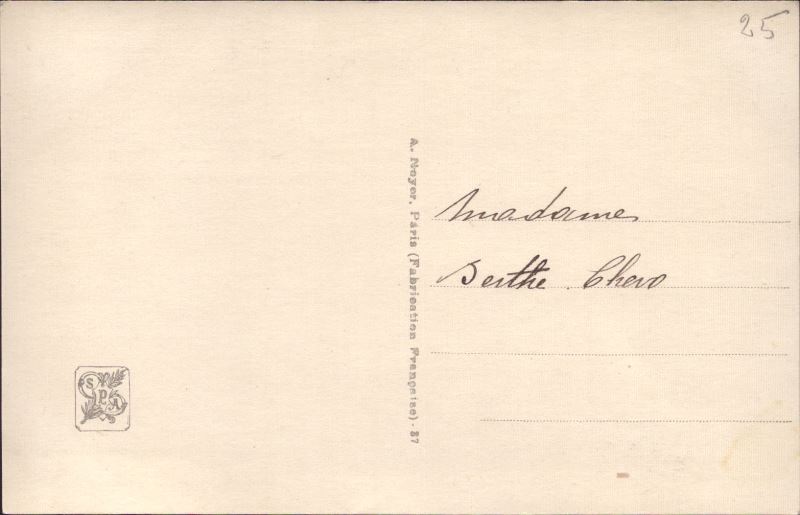 25
A. Noyer, Paris (Fabrication Française) - 37
Madame
Berthe Chero
S P A